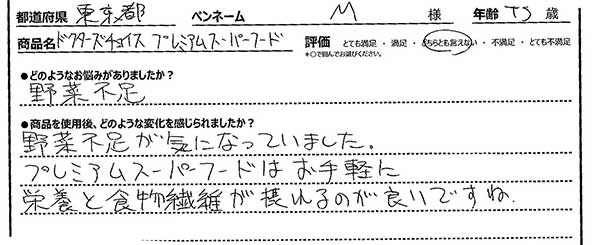 都道府県 東京都 ペンネーム M 様 年齢 歳
商品名 ドクターズチョイス プレミアムスーパーフード 評価 とても満足 ・ 満足 ・ どちらとも言えない ・ 不満足 ・ とても不満足
*○で囲んでお選びください。
●どのようなお悩みがありましたか？
野菜不足
●商品を使用後、どのような変化を感じられましたか？
野菜不足が気になっていました。
プレミアムスーパーフードはお手軽に
栄養と食物繊維が摂れるのが良いですね。